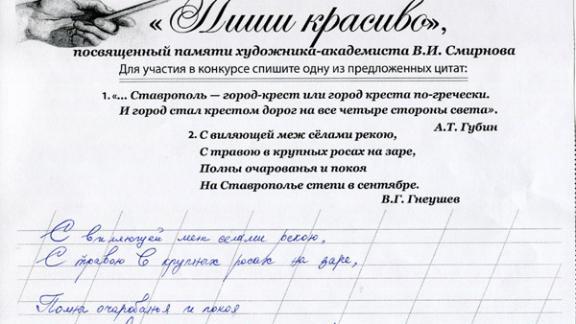 « Пиши красиво»,
посвященный памяти художника-академиста В.И. Смирнова
Для участия в конкурсе спишите одну из предложенных цитат:
1. «... Ставрополь — город-крест или город креста по-гречески.
И город стал крестом дорог на все четыре стороны света».
А.Т. Губин
2. С виляющей меж сёлами рекою,
С травою в крупных росах на заре,
Полны очарованья и покоя
На Ставрополье степи в сентябре.
В.Г. Гнеушев
С виляющей меж селами рекою,
С травою в крупных росах на заре,
Полна очарованья и покоя